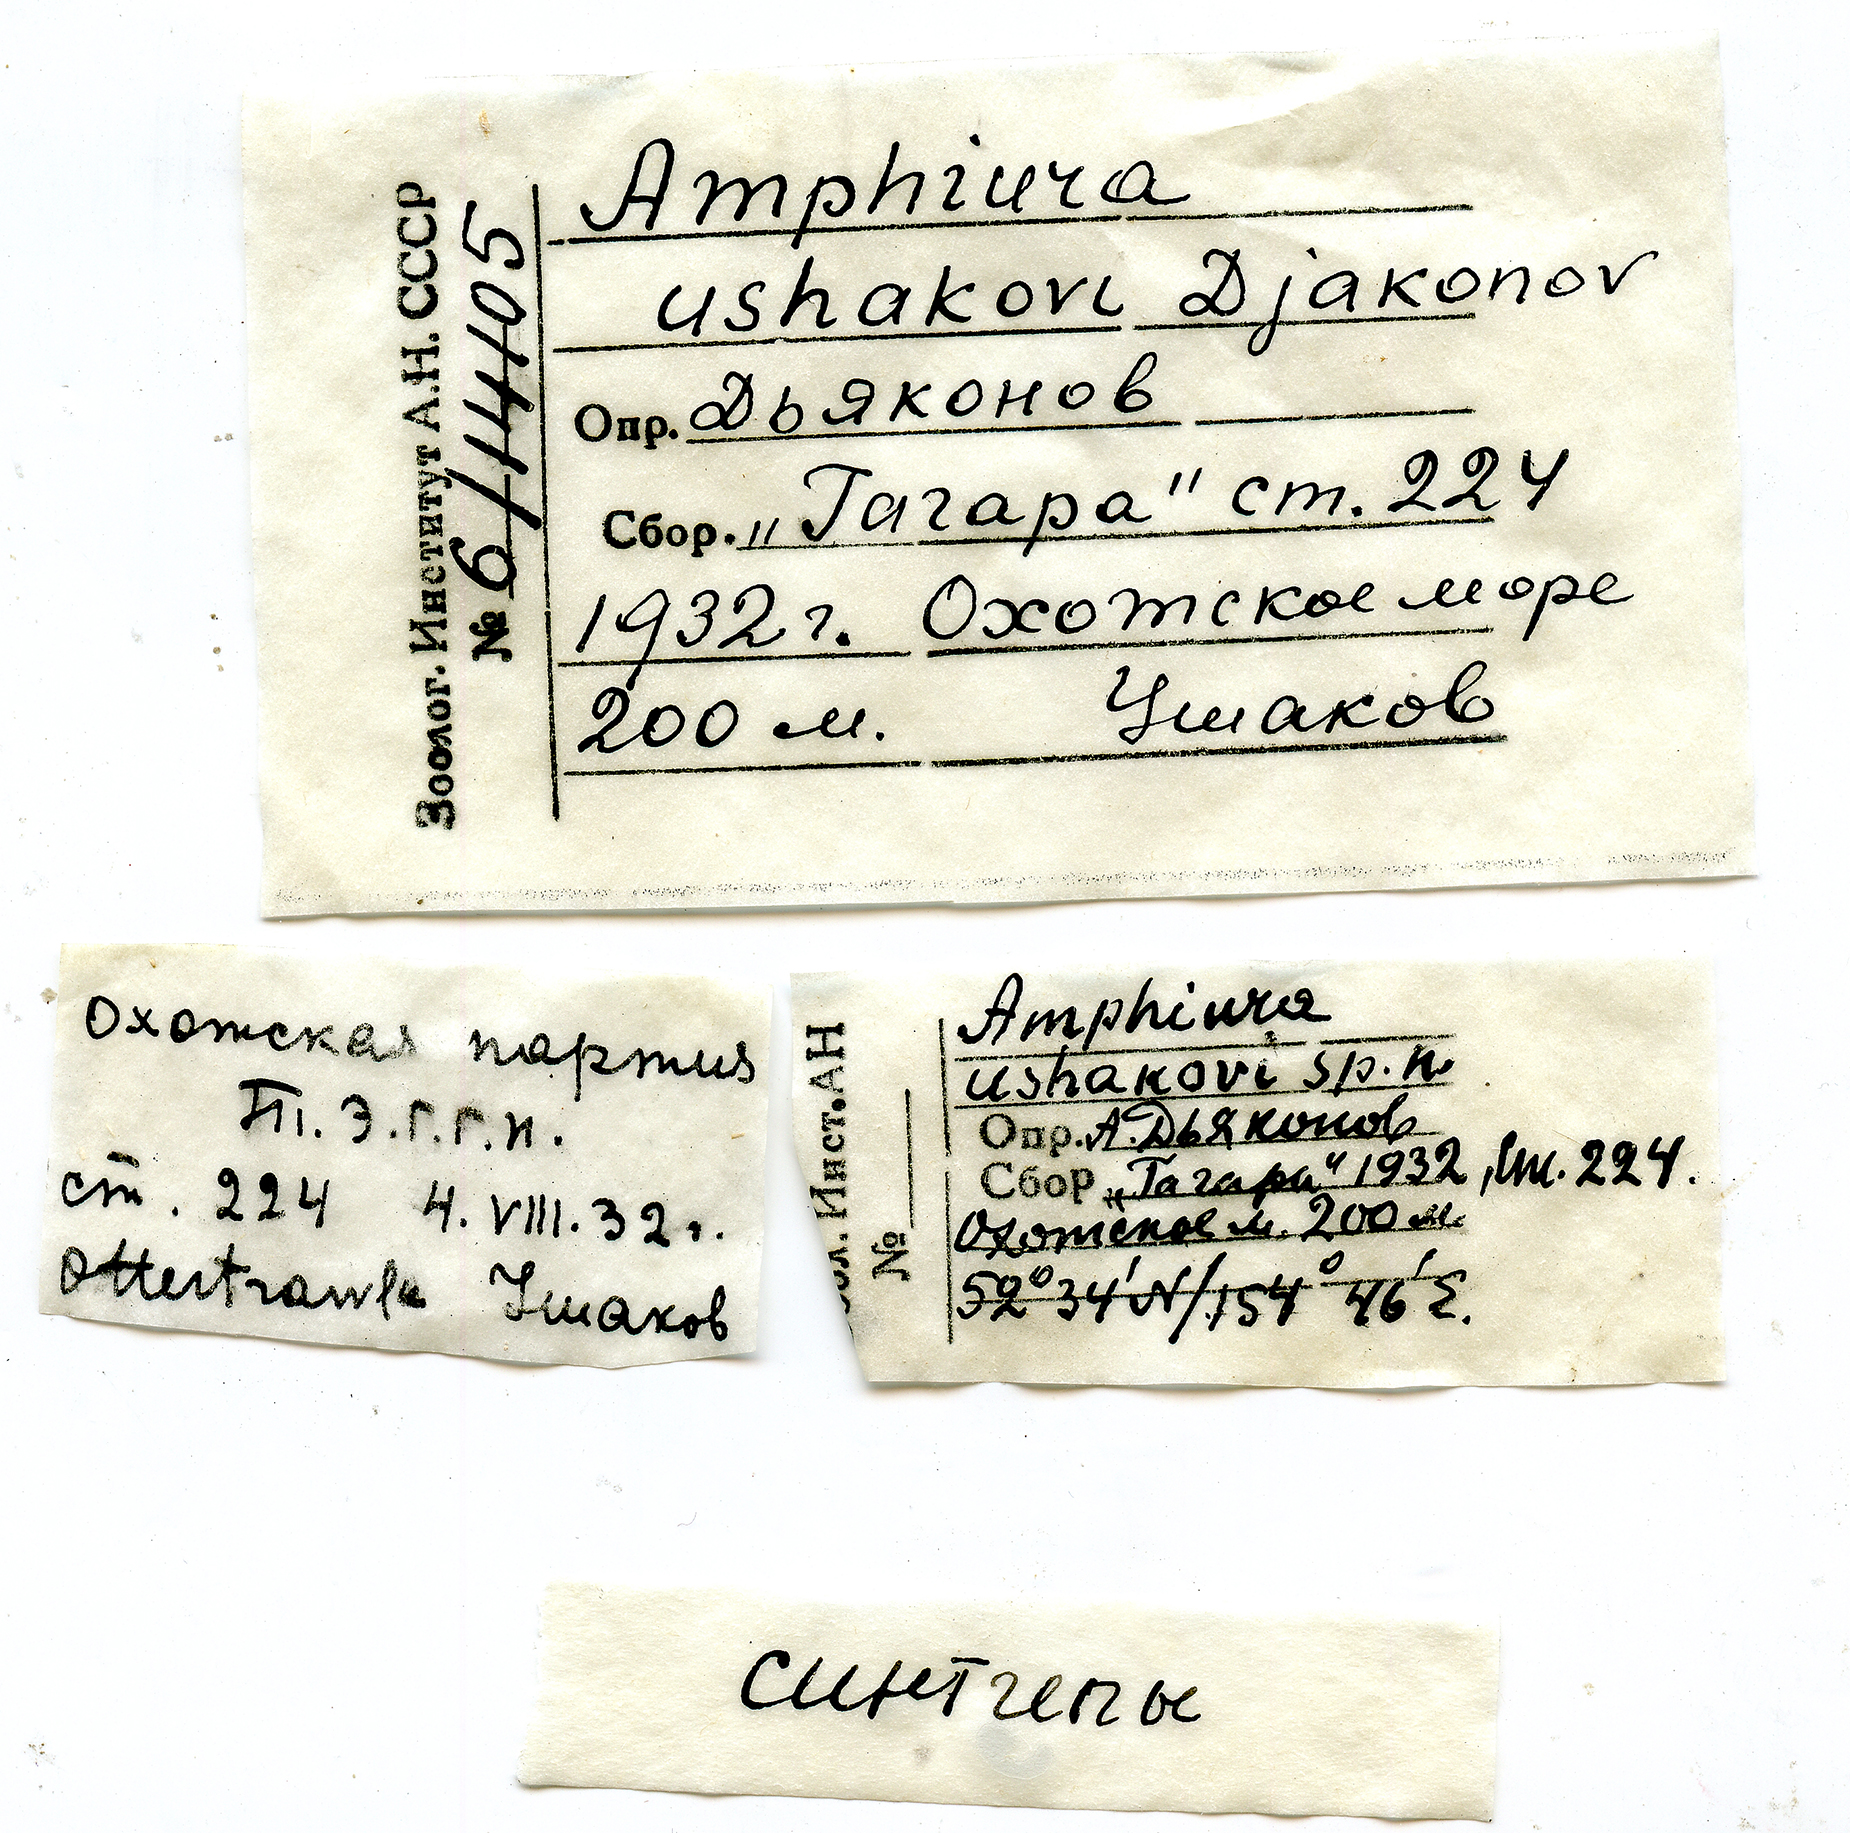 Зоолог. Институт А.Н. СССР
№ 6/14405
Amphiura
ushakovi Djakonov
Опр. Дьяконов
Сбор. „Гагара" ст. 224
1932 г. Охотское море
200 м. Ушаков
Охотская партия
Т.Э.Г.Г.И.
ст. 224 4.VIII.32 г.
Ottertrawl Ушаков
Инст. АН
№
Amphiura
ushakovi sp. n.
Опр. А. Дьяконов
Сбор „Гагара" 1932, ст. 224.
Охотское м. 200 м.
52° 34' N/154° 46' E.
синтипы